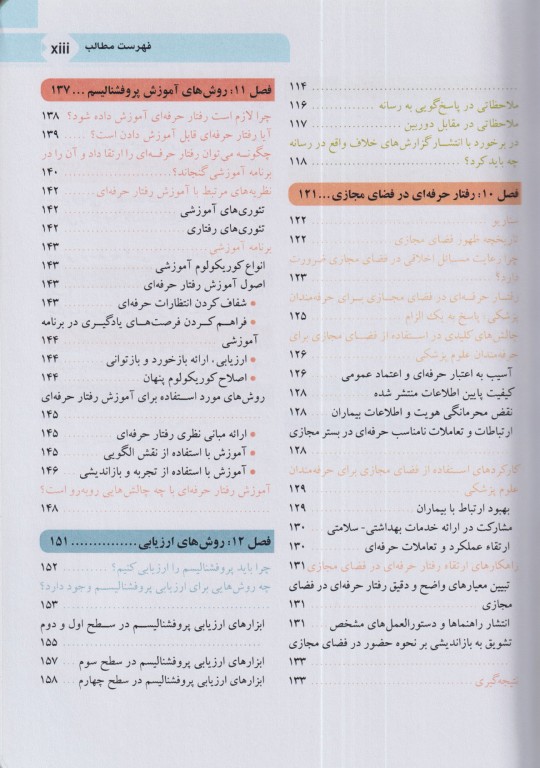 فهرست مطالب xiii
۱۱۴
ملاحظاتی در پاسخ‌گویی به رسانه ۱۱۶
ملاحظاتی در مقابل دوربین ۱۱۷
در برخورد با انتشار گزارش‌های خلاف واقع در رسانه
چه باید کرد؟ ۱۱۸
فصل ۱۰: رفتار حرفه‌ای در فضای مجازی ... ۱۲۱
سناریو ۱۲۲
تاریخچه ظهور فضای مجازی ۱۲۲
چرا رعایت مسائل اخلاقی در فضای مجازی ضرورت
دارد؟ ۱۲۳
رفتار حرفه‌ای در فضای مجازی برای حرفه‌مندان
پزشکی، پاسخ به یک الزام ۱۲۵
چالش‌های کلیدی در استفاده از فضای مجازی برای
حرفه‌مندان علوم پزشکی ۱۲۶
آسیب به اعتبار حرفه‌ای و اعتماد عمومی ۱۲۶
کیفیت پایین اطلاعات منتشر شده ۱۲۸
نقض محرمانگی هویت و اطلاعات بیماران ۱۲۸
ارتباطات و تعاملات نامناسب حرفه‌ای در بستر مجازی
۱۲۸
کارکردهای استفاده از فضای مجازی برای حرفه‌مندان
علوم پزشکی ۱۲۹
بهبود ارتباط با بیماران ۱۲۹
مشارکت در ارائه خدمات بهداشتی- سلامتی ۱۳۰
ارتقاء عملکرد و تعاملات حرفه‌ای ۱۳۰
راهکارهای ارتقاء رفتار حرفه‌ای در فضای مجازی ۱۳۱
تبیین معیارهای واضح و دقیق رفتار حرفه‌ای در فضای
مجازی ۱۳۱
انتشار راهنماها و دستورالعمل‌های مشخص ۱۳۱
تشویق به بازاندیشی بر نحوه حضور در فضای مجازی
۱۳۳
نتیجه‌گیری ۱۳۳
فصل ۱۱: روش‌های آموزش پروفشنالیسم ... ۱۳۷
چرا لازم است رفتار حرفه‌ای آموزش داده شود؟ ۱۳۸
آیا رفتار حرفه‌ای قابل آموزش دادن است؟ ۱۳۹
چگونه می‌توان رفتار حرفه‌ای را ارتقا داد و آن را در
برنامه آموزشی گنجاند؟ ۱۴۰
نظریه‌های مرتبط با آموزش رفتار حرفه‌ای ۱۴۲
تئوری‌های آموزشی ۱۴۲
تئوری‌های رفتاری ۱۴۲
برنامه آموزشی ۱۴۳
انواع کوریکولوم آموزشی ۱۴۳
اصول آموزش رفتار حرفه‌ای ۱۴۳
● شفاف کردن انتظارات حرفه‌ای ۱۴۳
● فراهم کردن فرصت‌های یادگیری در برنامه
آموزشی ۱۴۴
● ارزیابی، ارائه بازخورد و بازتوانی ۱۴۴
● اصلاح کوریکولوم پنهان ۱۴۴
روش‌های مورد استفاده برای آموزش رفتار حرفه‌ای
۱۴۵
● ارائه مبانی نظری رفتار حرفه‌ای ۱۴۵
● آموزش با استفاده از نقش الگویی ۱۴۵
● آموزش با استفاده از تجربه و بازاندیشی ۱۴۶
آموزش رفتار حرفه‌ای با چه چالش‌هایی روبه‌رو است؟
۱۴۸
فصل ۱۲: روش‌های ارزیابی .............. ۱۵۱
چرا باید پروفشنالیسم را ارزیابی کنیم؟ ۱۵۲
چه روش‌هایی برای ارزیابی پروفشنالیسم وجود دارد؟
۱۵۳
ابزارهای ارزیابی پروفشنالیسم در سطح اول و دوم
۱۵۵
ابزارهای ارزیابی پروفشنالیسم در سطح سوم ۱۵۷
ابزارهای ارزیابی پروفشنالیسم در سطح چهارم ۱۵۸